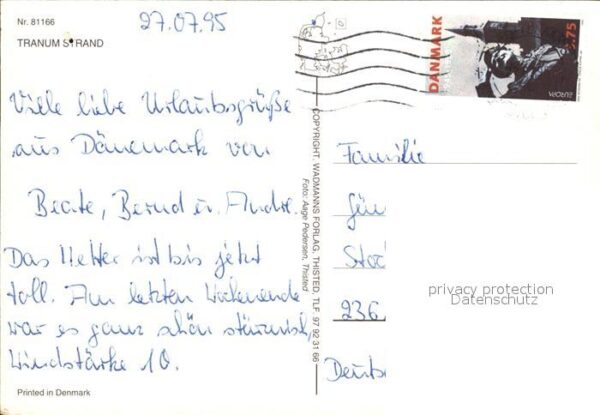 Nr. 81166
TRANUM STRAND
27.07.95
Viele liebe Urlaubsgrüße
aus Dänemark von
Beate, Bernd u. André.
Das Wetter ist bis jetzt
toll. Am letzten Wochenende
war es ganz schön stürmisch,
Windstärke 10.
Printed in Denmark
COPYRIGHT. WADMANNS FORLAG, THISTED, TLF. 97 92 31 66
Foto: Aage Pedersen, Thisted
DANMARK
3.75
EUROPA
Familie
Gün
Stoc
236
Deuts
privacy protection
Datenschutz